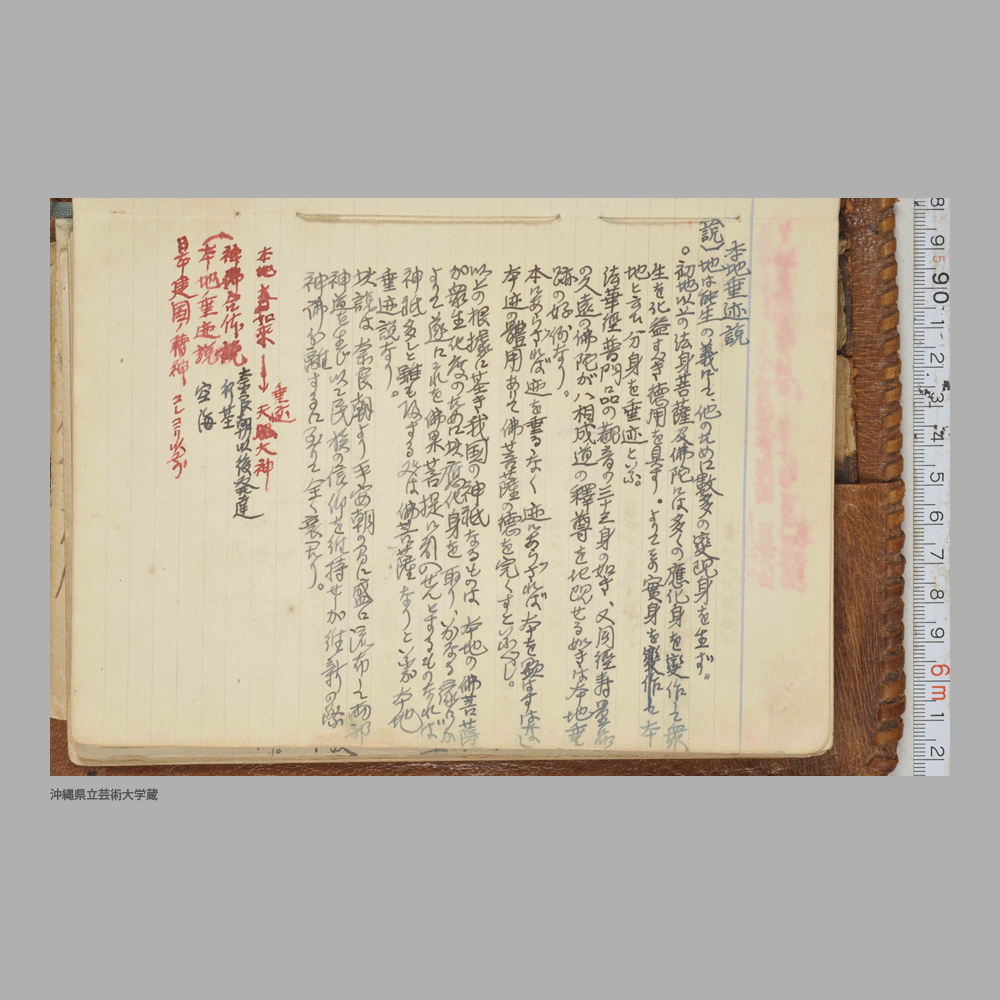 本地垂迹説
説)地は能生の義にて、他のために数多の変現身を生ず。
。初地以上の法身菩薩及佛陀には多くの應化身を変作して衆
生を化益すべき徳用を具す。よってその實身を変作して本
地と云ひ分身を垂迹と云ふ。
法華經普門品の観音の三十三身の如き、又同經寿量品
の久遠の佛陀が八相成道の釋尊を化現せる如きは本地垂
跡の好例なり。
本にあらざれば迹を垂るなく迹にあらざれば本を顕すはなし
本迹の體用ありて佛菩薩の徳を完くすと云ふべし。
以上の根據に基き我国の神祇なるものは本地の佛菩薩
が羅生化度のために此應化身を取り、いかなる縁にか
よって遂にこれを佛果菩提に引入せんとするものなれば
神祇多しと雖も帰する処は佛菩薩なりといふが本地
垂迹説なり。
此説は奈良朝より平安朝の間に盛に流布して両部
神道を生じ以て民族の信仰を維持せしが維新の際
神佛分離するに至りて全く衰へたり。
本地 大日如来 → 天照大神
垂迹
神佛合作説 奈良朝以後発達
(本地垂迹説 行基
空海
日本建国の精神 コレヨリ以前
沖縄県立芸術大学蔵